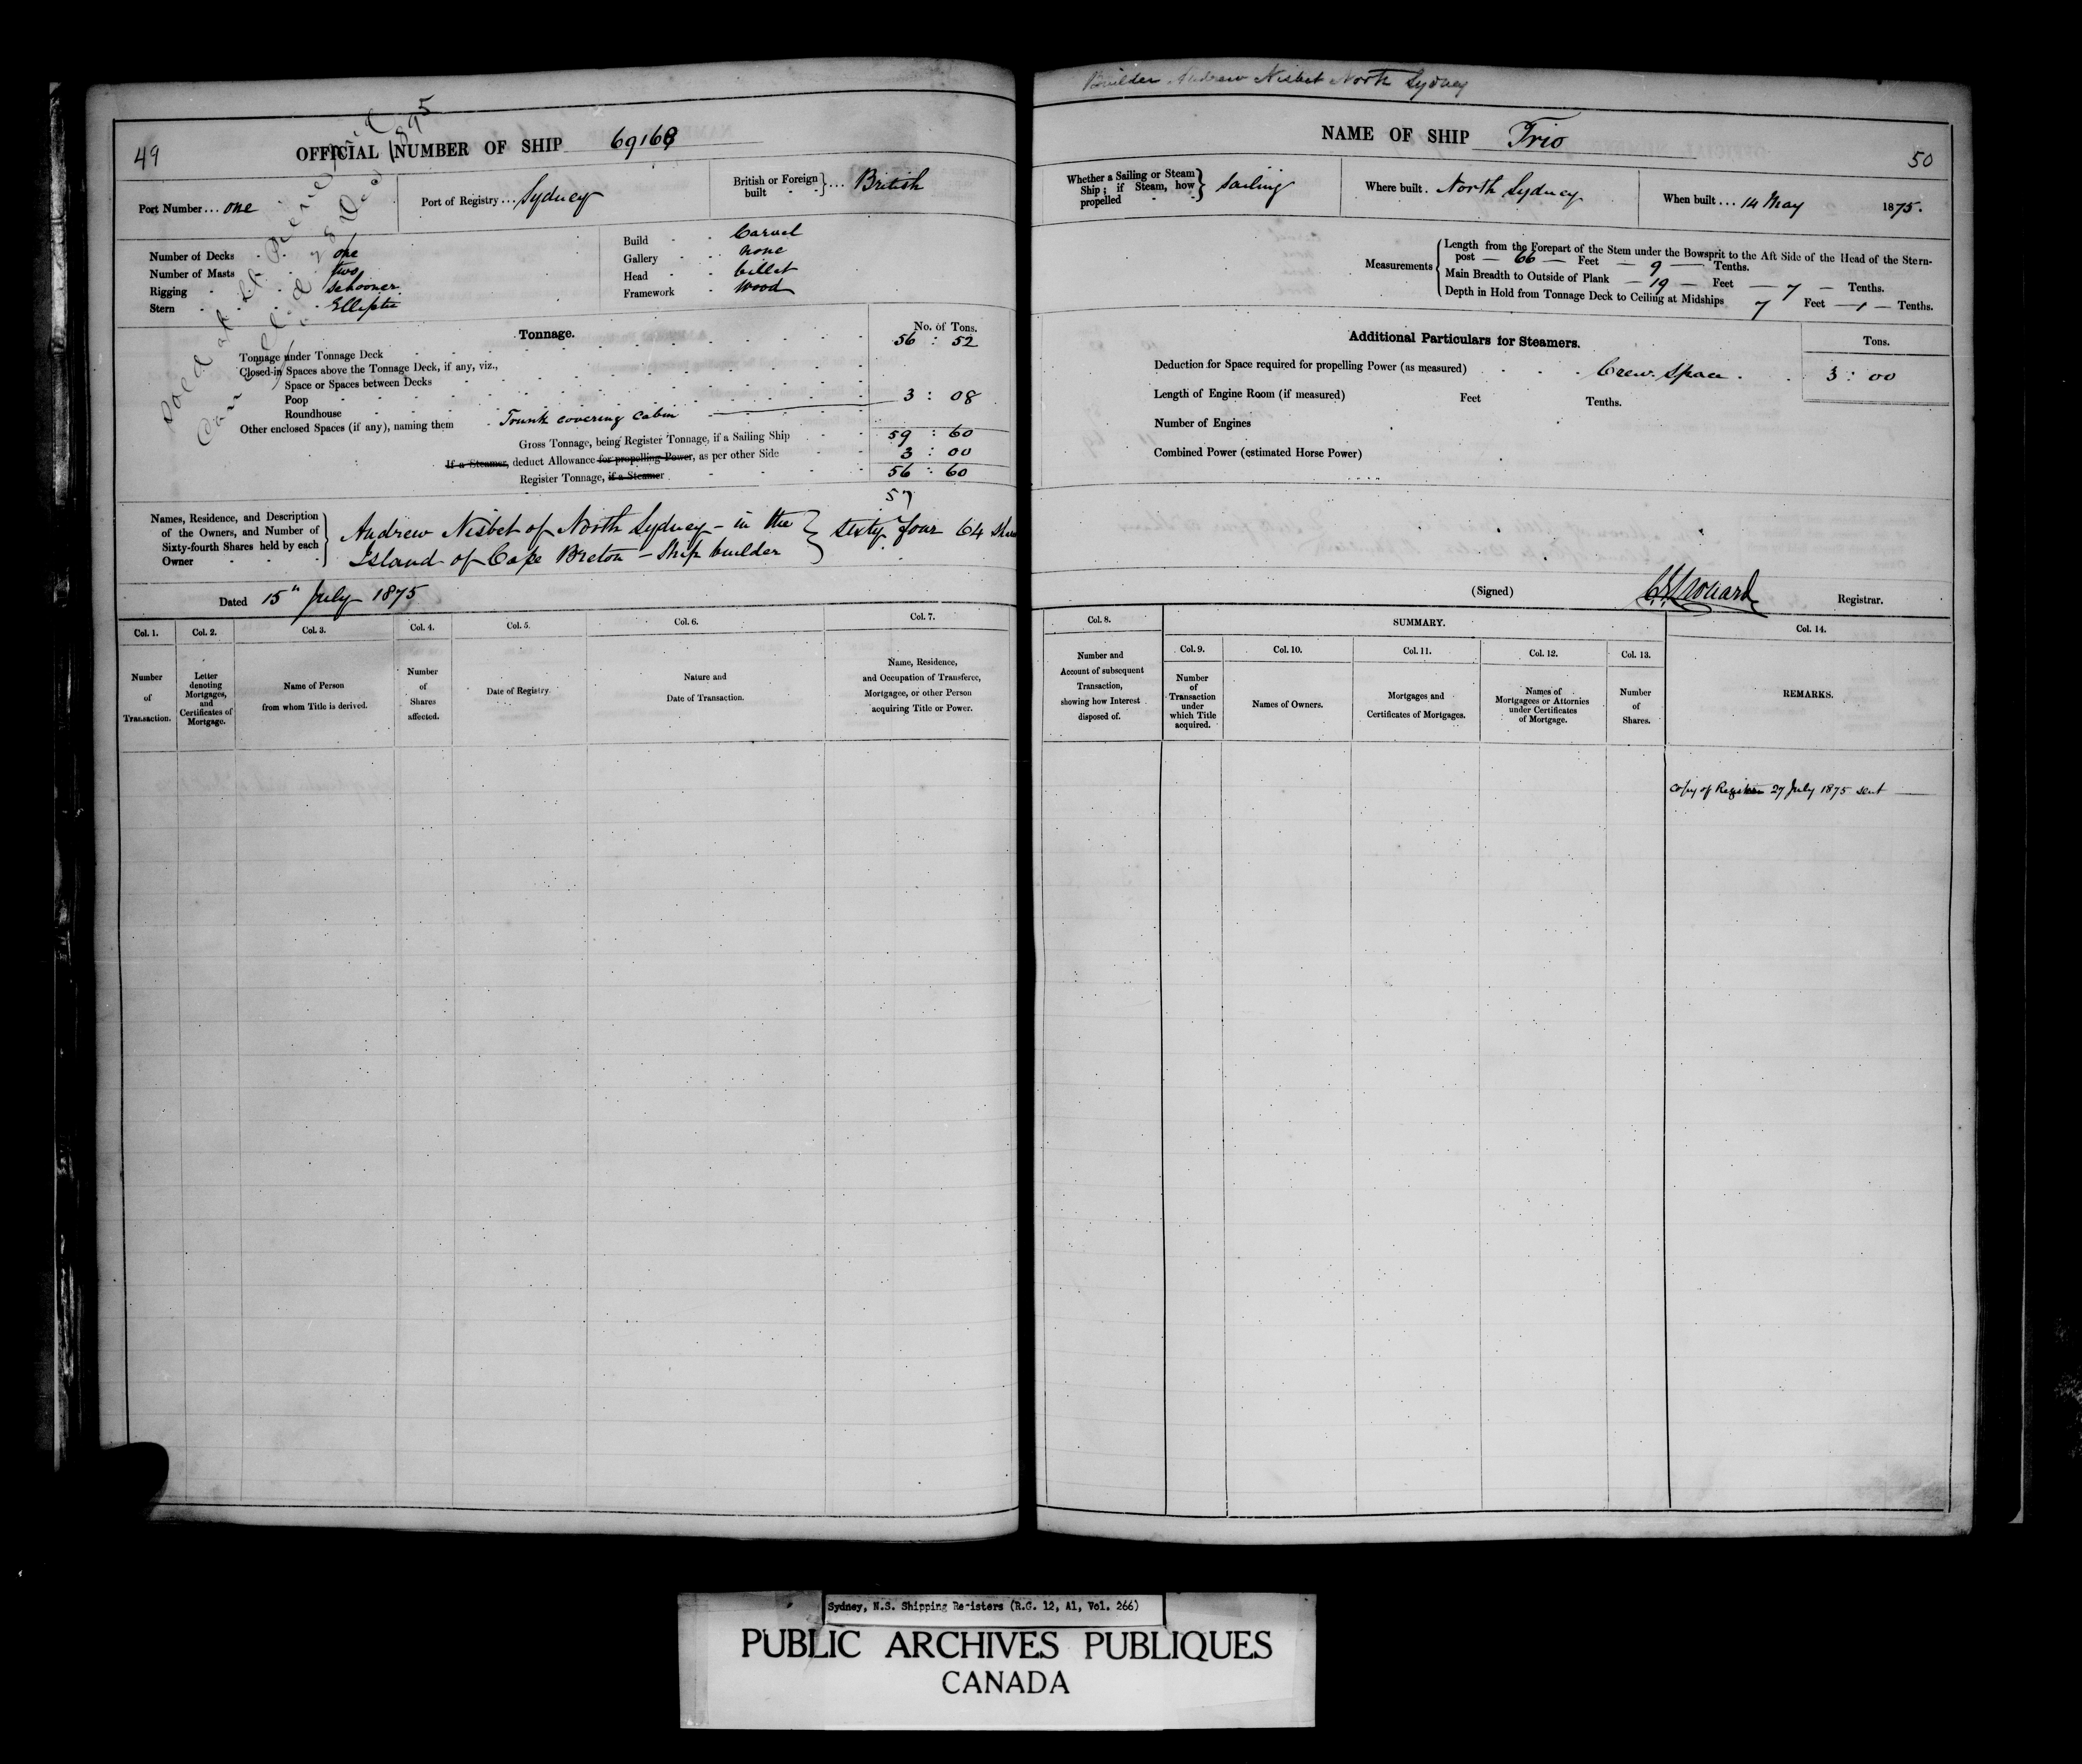 49
OFFICIAL NUMBER OF SHIP 69168
Port Number... one
Port of Registry... Sydney
British or Foreign built } ... British
Number of Decks - one
Number of Masts - two
Rigging - Schooner
Stern - Elliptic
Build - Carvel
Gallery - none
Head - billet
Framework - Wood
Sold at St Pierre
1895
Tonnage.
No. of Tons.
Tonnage under Tonnage Deck 56 : 52
Closed-in Spaces above the Tonnage Deck, if any, viz.,
Space or Spaces between Decks
Poop
Roundhouse 3 : 08
Other enclosed Spaces (if any), naming them - Trunk covering cabin
Gross Tonnage, being Register Tonnage, if a Sailing Ship 59 : 60
If a Steamer, deduct Allowance for propelling Power, as per other Side 3 : 00
Register Tonnage, if a Steamer 56 : 60
57
Names, Residence, and Description of the Owners, and Number of Sixty-fourth Shares held by each Owner
Andrew Nisbet of North Sydney - in the
Island of Cape Breton - Ship builder } Sixty four 64 Shares
Dated 15th July 1875
Col. 1. Col. 2. Col. 3. Col. 4. Col. 5. Col. 6. Col. 7.
Number of Transaction.
Letter denoting Mortgages, and Certificates of Mortgage.
Name of Person from whom Title is derived.
Number of Shares affected.
Date of Registry.
Nature and Date of Transaction.
Name, Residence, and Occupation of Transferee, Mortgagee, or other Person acquiring Title or Power.
Builder Andrew Nisbet North Sydney
NAME OF SHIP Trio
50
Whether a Sailing or Steam Ship; if Steam, how propelled } Sailing
Where built. North Sydney
When built... 14 May 1875.
Measurements
Length from the Forepart of the Stem under the Bowsprit to the Aft Side of the Head of the Stern-
post — 66 — Feet — 9 — Tenths.
Main Breadth to Outside of Plank — 19 — Feet — 7 — Tenths.
Depth in Hold from Tonnage Deck to Ceiling at Midships 7 Feet — 1 — Tenths.
Additional Particulars for Steamers.
Tons.
Deduction for Space required for propelling Power (as measured) Crew Space 3 : 00
Length of Engine Room (if measured) Feet Tenths.
Number of Engines
Combined Power (estimated Horse Power)
(Signed) Registrar.
Col. 8. SUMMARY. Col. 14.
Col. 9. Col. 10. Col. 11. Col. 12. Col. 13.
Number and Account of subsequent Transaction, showing how Interest disposed of.
Number of Transaction under which Title acquired.
Names of Owners.
Mortgages and Certificates of Mortgages.
Names of Mortgagees or Attornies under Certificates of Mortgage.
Number of Shares.
REMARKS.
Copy of Register 27 July 1875 sent
Sydney, N.S. Shipping Registers (R.G. 12, A1, Vol. 266)
PUBLIC ARCHIVES PUBLIQUES
CANADA